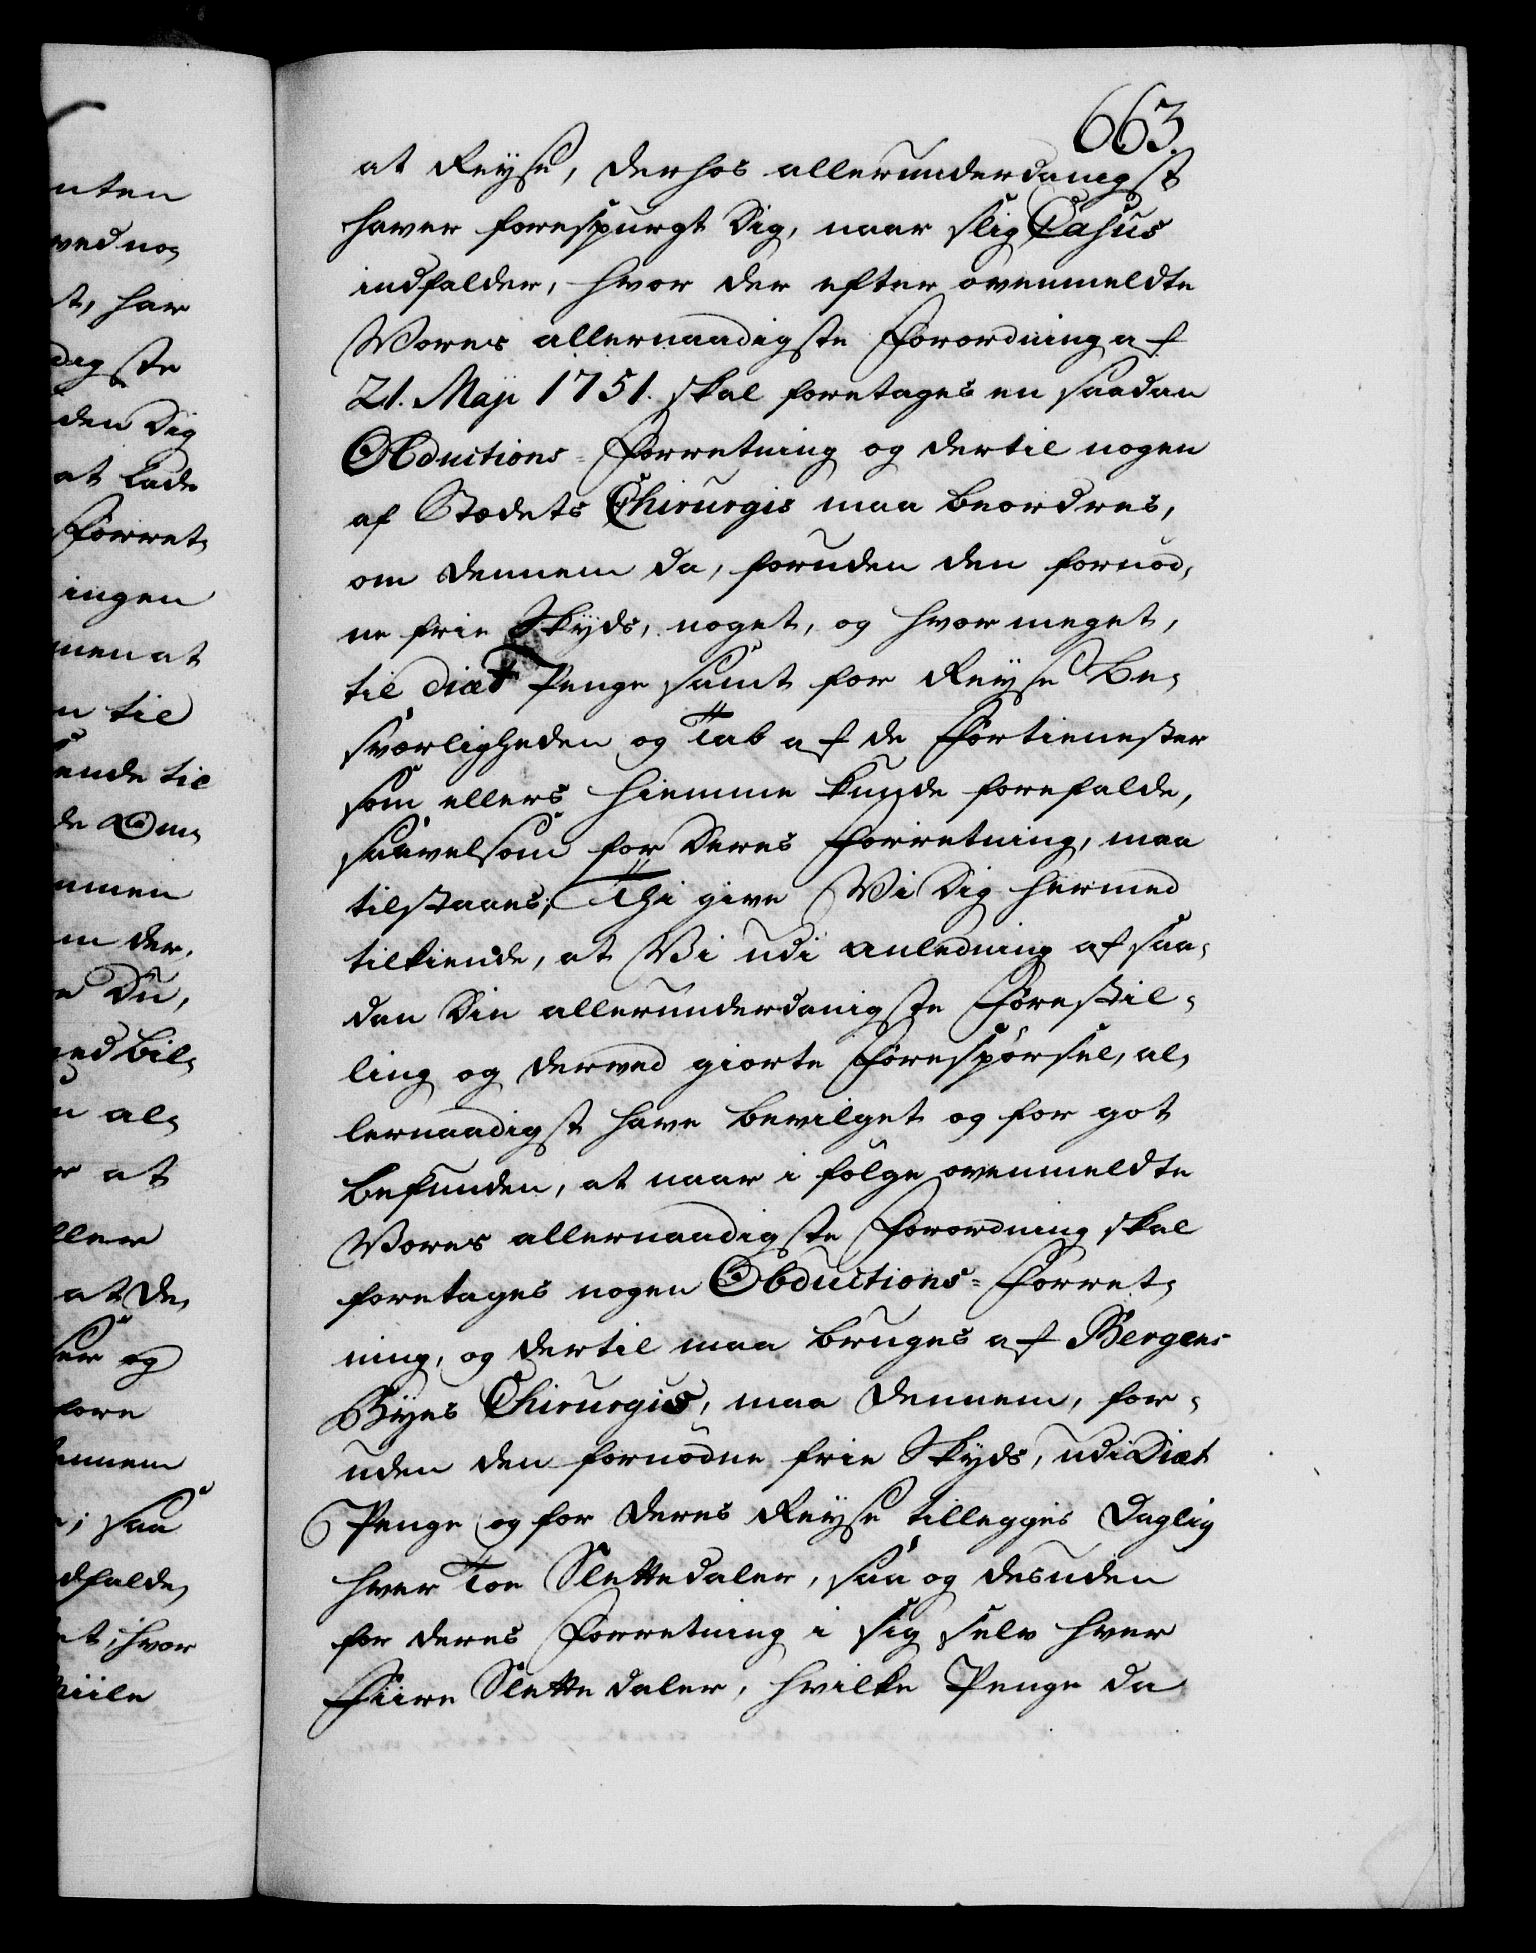 663.
nten
ved no,
st, har
digste
den Dig
at lade
Forret,
ingen
men at
n til
ende til
de Om,
mmen
m der,
e Du,
ned bil,
n al,
r at
ller
at de,
ser og
fore
dennem
; saa
dfalde,
et, hvor
Miile
at Reyse, derhos allerunderdanigst
haver forespurgt Dig, naar slig Casus
indfalder, hvor der efter ovenmeldte
Vores allernaadigste Forordning af
21. Maji 1751. skal foretages en saadan
Obductions-Forretning og dertil nogen
af Stedets Chirurgis maa beordres,
om dennem da, foruden den fornød,
ne frie Skyds, noget, og hvor meget,
til diæt Penge samt for Reyse Be,
sværligheden og Tab af de Fortienester
som ellers hiemme kunde forefalde,
saavelsom for deres Forretning, maa
tilstaaes; Thi give Vi Dig hermed
tilkiende, at Vi udi anledning af saa,
dan Din allerunderdanigste Forestil,
ling og derved giorte Forespørsel, al,
lernaadigst have bevilget og for got
befunden, at naar i følge ovenmeldte
Vores allernaadigste Forordning skal
foretages nogen Obductions-Forret,
ning, og dertil maa bruges af Bergens
Byes Chirurgis, maa dennem, for,
uden den fornødne frie Skyds, udi Diæt
Penge og for deres Reyse tillegges Daglig
hver Toe Slettedaler, saa og desuden
for deres Forretning i sig selv hver
Fiire Slettedaler, hvilke Penge da